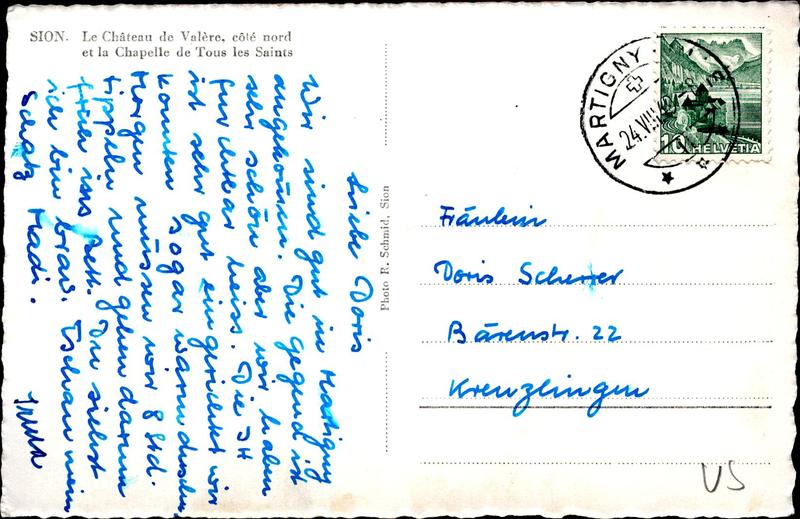 SION. Le Château de Valère, côté nord
et la Chapelle de Tous les Saints
Liebe Doris
Wir sind gut in Martigny
angekommen. Die Gegend ist
sehr schön aber wir haben
furchtbar heiss. Die JH
ist sehr gut eingerichtet wir
konnten sogar warm duschen
Morgen müssen wir 8 Std.
tippeln und gehen darum
früh ins Bett. Du siehst
ich bin brav. Tschau mein
Schatz Hadi.
Photo R. Schmid, Sion
MARTIGNY
24.VIII
10 HELVETIA
Fräulein
Doris Scherrer
Bärenstr. 22
Kreuzlingen
VS